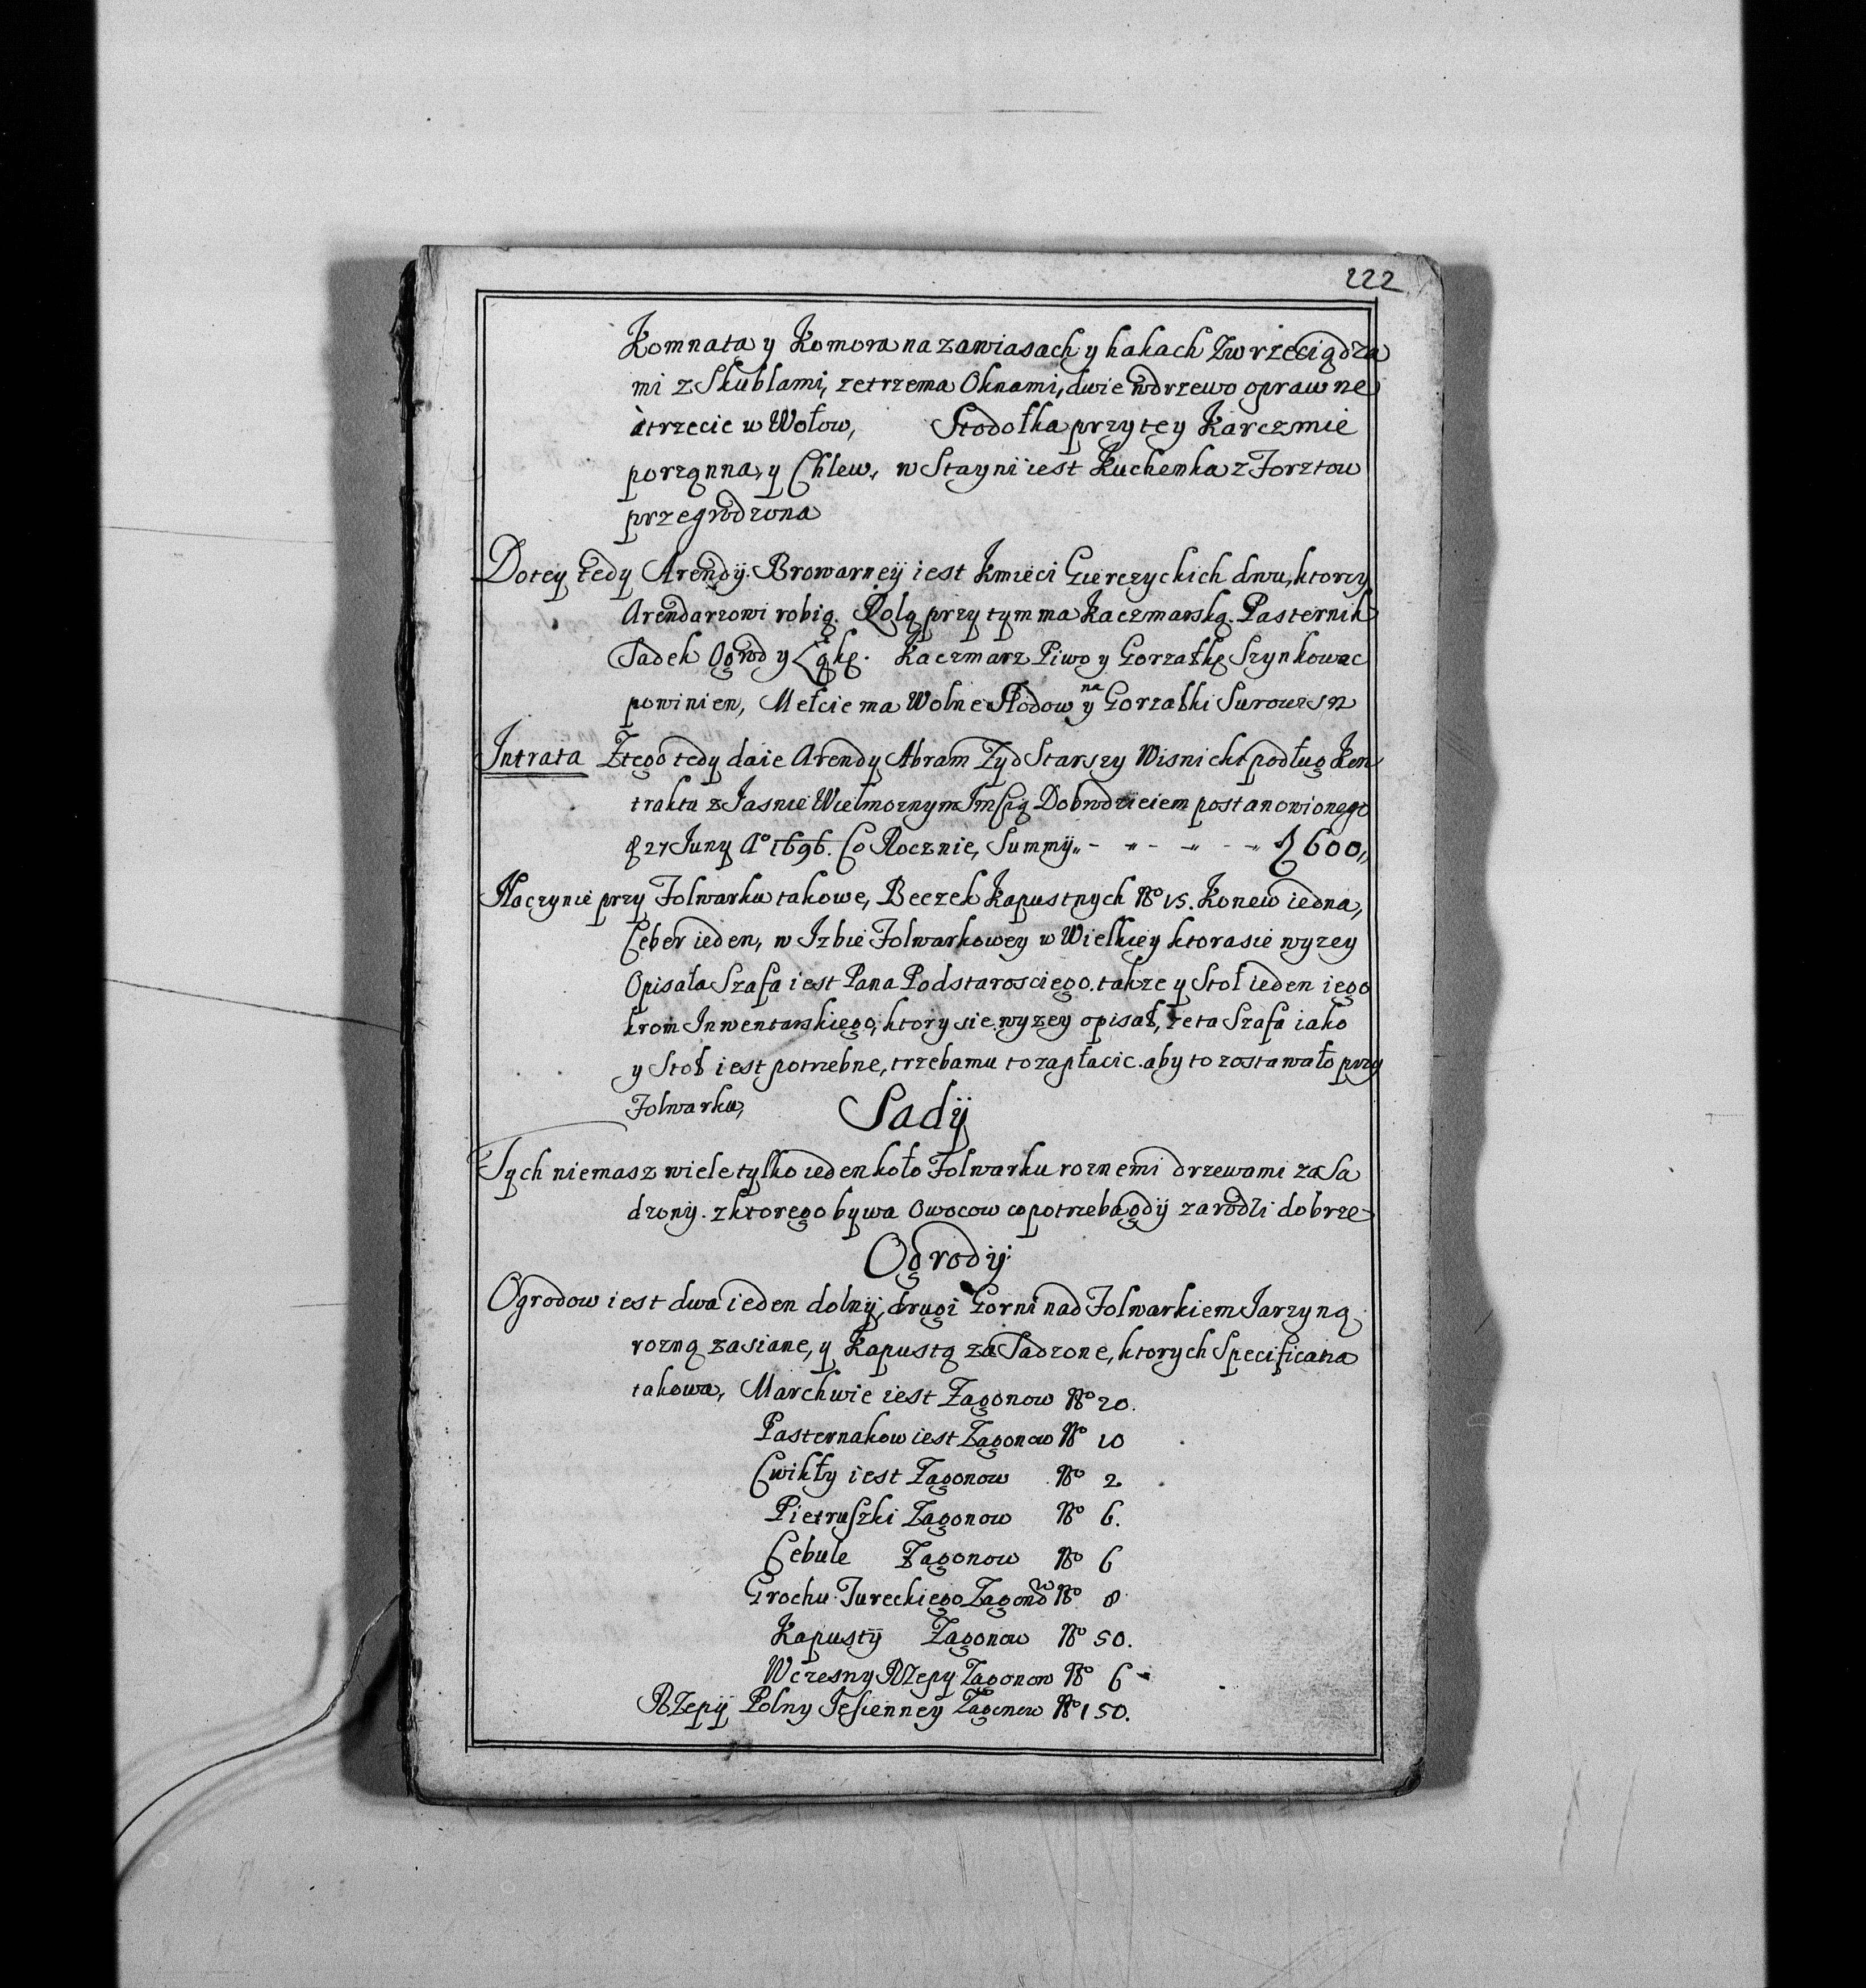 222
Komnata y Komora na zawiasach y hakach Zwrzeciądza
mi z Skublami, ze trzema Oknami, dwie wdrzewo oprawne
a trzecie w Ołow, Stodołka przy tey Karczmie
porząnna, y Chlew, w Stayni iest Kuchenka z Forztow
przegrodzona
Do tey tedy Arendÿ Browarneÿ iest Kmieci Gierczyckich dwu, ktorzy
Arendarzowi robią. Rolą przy tym ma Kaczmarską. Pasternik
Sadek Ogrod y Łąkę. Kaczmarz Piwo y Gorzałkę Szynkowac
powinien, Mełcie ma Wolne Słodow y na Gorzałki Surowizn
Intrata Z tego tedy daie Arendy Abram Zyd Starszy Wisnicki podług Kon
traktu z Jasnie Wielmoznym Jmscią Dobrodzieiem postanowionego
d 27 Juny Ao 1696. Co Rocznie, Summÿ " - " - " - " f 600 "
Naczynie przy Folwarku takowe, Beczek Kapustnych No 15. Konew iedna,
Ceber ieden, w Izbie Folwarkowey w Wielkiey ktora sie wyzey
Opisała Szafa iest Pana Podstarosciego. takze y Stoł ieden iego
krom Inwentarskiego, ktory sie wyzey opisał, ze ta Szafa iako
y Stoł iest potrzebne, trzeba mu to zapłacic. aby to zostawało przy
Folwarku,
Sadÿ
Tych niemasz wiele tylko ieden koło Folwarku roznemi drzewami zaSa
dzonÿ. z ktorego bywa Owocow co potrzeba gdÿ zarodzi dobrze
Ogrodÿ
Ogrodow iest dwa ieden dolnÿ, drugi Gorni nad Folwarkiem Jarzyną
rozną zasiane, y Kapustą zaSadzone, ktorych Specificatia
takowa, Marchwie iest Zagonow No 20.
Pasternakow iest Zagonow No 10
Cwikły iest Zagonow No 2
Pietruszki Zagonow No 6.
Cebule Zagonow No 6
Grochu Tureckiego Zagonow No 8
Kapustÿ Zagonow No 50.
Wczesny RZepy Zagonow No 6
RZepÿ Polny Jesienneÿ Zagonow No 150.